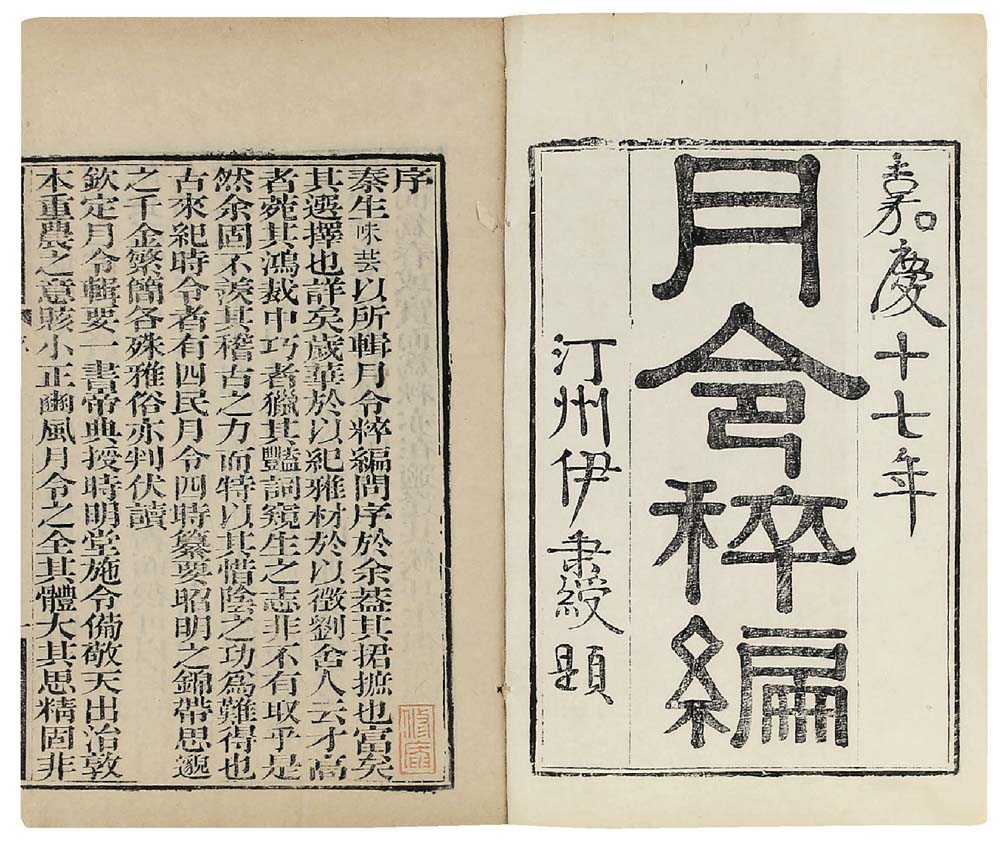 嘉慶十七年
月令粹編
汀州伊秉綬題
序
秦生味芸以所輯月令粹編問序於余葢其捃摭也富矣
其選擇也詳矣歲華於以紀雅材於以徵劉舍人云才高
者菀其鴻裁中巧者獵其豔詞窺生之志非不有取乎是
然余固不羨其稽古之力而特以其惜陰之功爲難得也
古來紀時令者有四民月令四時纂要昭明之錦帶思邈
之千金繁簡各殊雅俗亦判伏讀
欽定月令輯要一書帝典授時明堂施令備敬天出治敦
本重農之意賅小正豳風月令之全其體大其思精固非